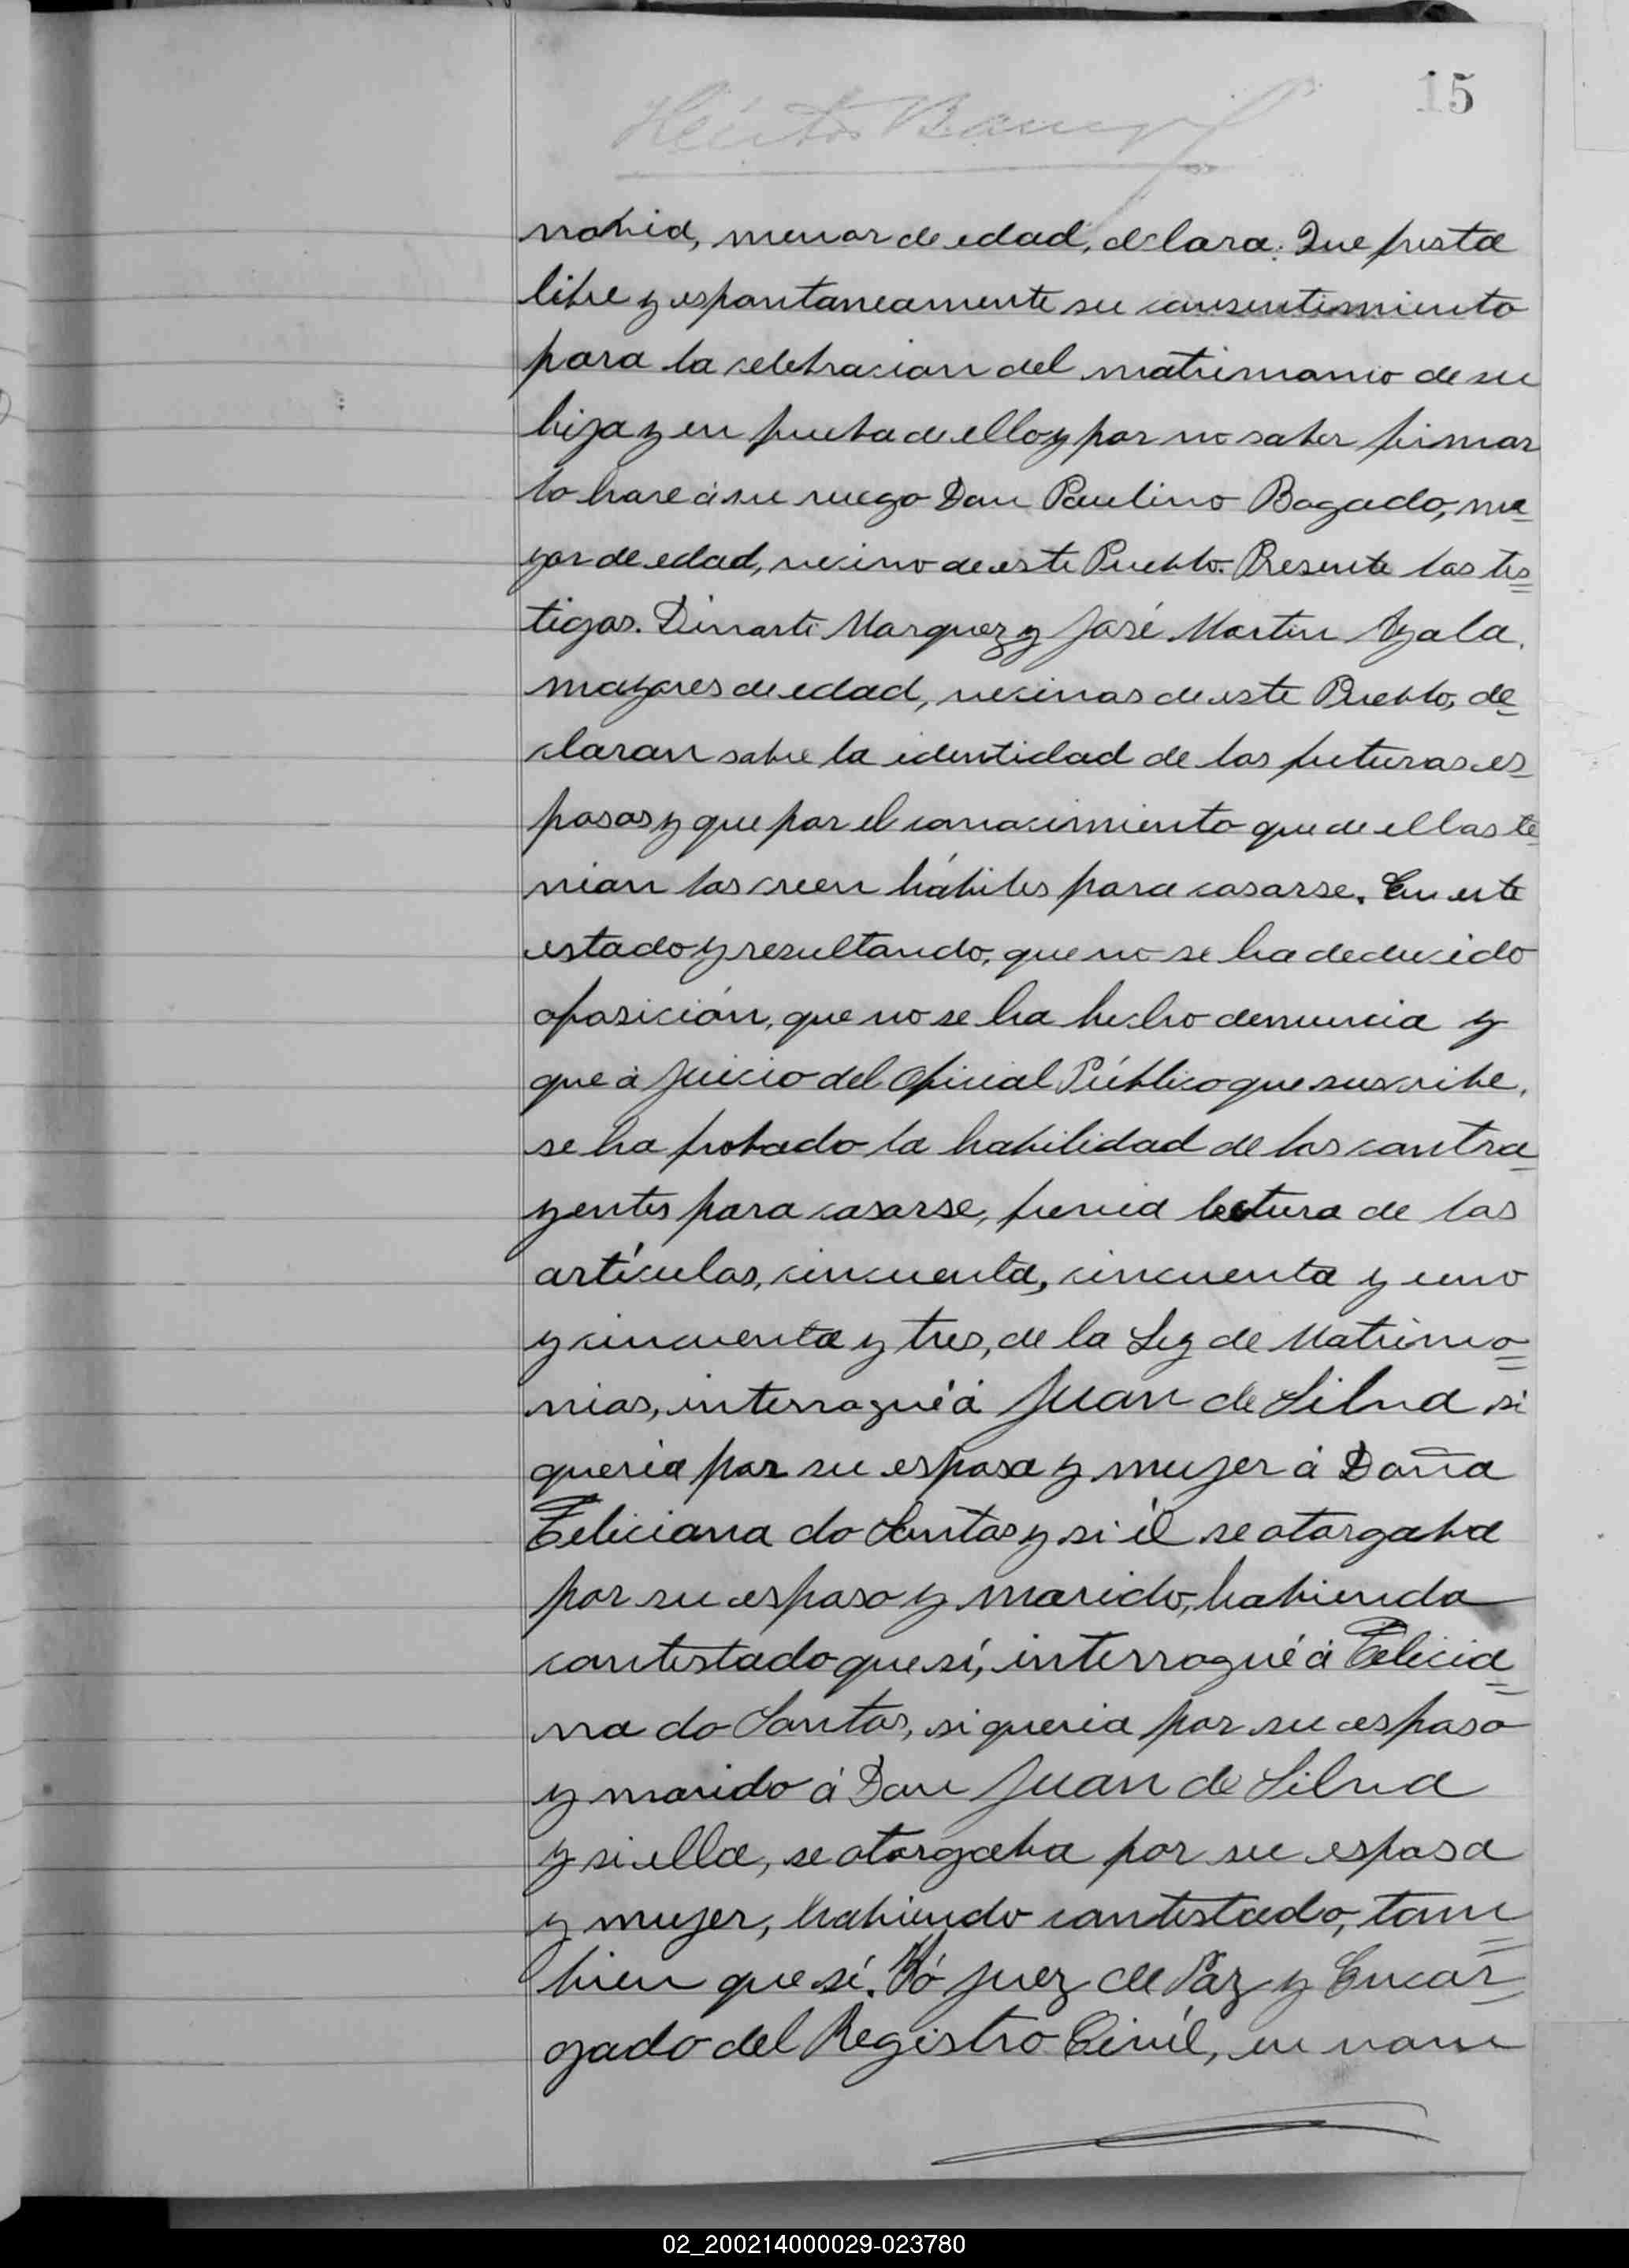 15
novia, menor de edad, declara: Que presta
libre y espontaneamente su consentimiento
para la celebracion del matrimonio de su
hija y en prueba de ello y por no saber firmar
lo hace á su ruego Don Paulino Bogado, ma
yor de edad, vecino de este Pueblo. Presente los tes
tigos. Dinarte Marquez y José Martin Ayala,
mayores de edad, vecinos de este Pueblo, de
claran sobre la identidad de los futuros es
posos y que por el conocimiento que de ellos te
nian los creen hábiles para casarse. En este
estado y resultando, que no se ha deducido
oposición, que no se ha hecho denuncia y
que á juicio del Oficial Público que suscribe,
se ha probado la habilidad de los contra
yentes para casarse, previa lectura de los
artículos, cincuenta, cincuenta y uno
y cincuenta y tres, de la Ley de Matrimo
nios, interrogué á Juan de Silva si
queria por su esposa y mujer á Doña
Feliciana do Santos y si él se otorgaba
por su esposo y marido, habiendo
contestado que sí, interrogué á Felicia
na do Santos, si queria por su esposo
y marido á Don Juan de Silva
y si ella, se otorgaba por su esposa
y mujer, habiendo contestado, tam
bien que sí. Yó Juez de Paz y Encar
gado del Registro Civíl, en nom
02_200214000029-023780